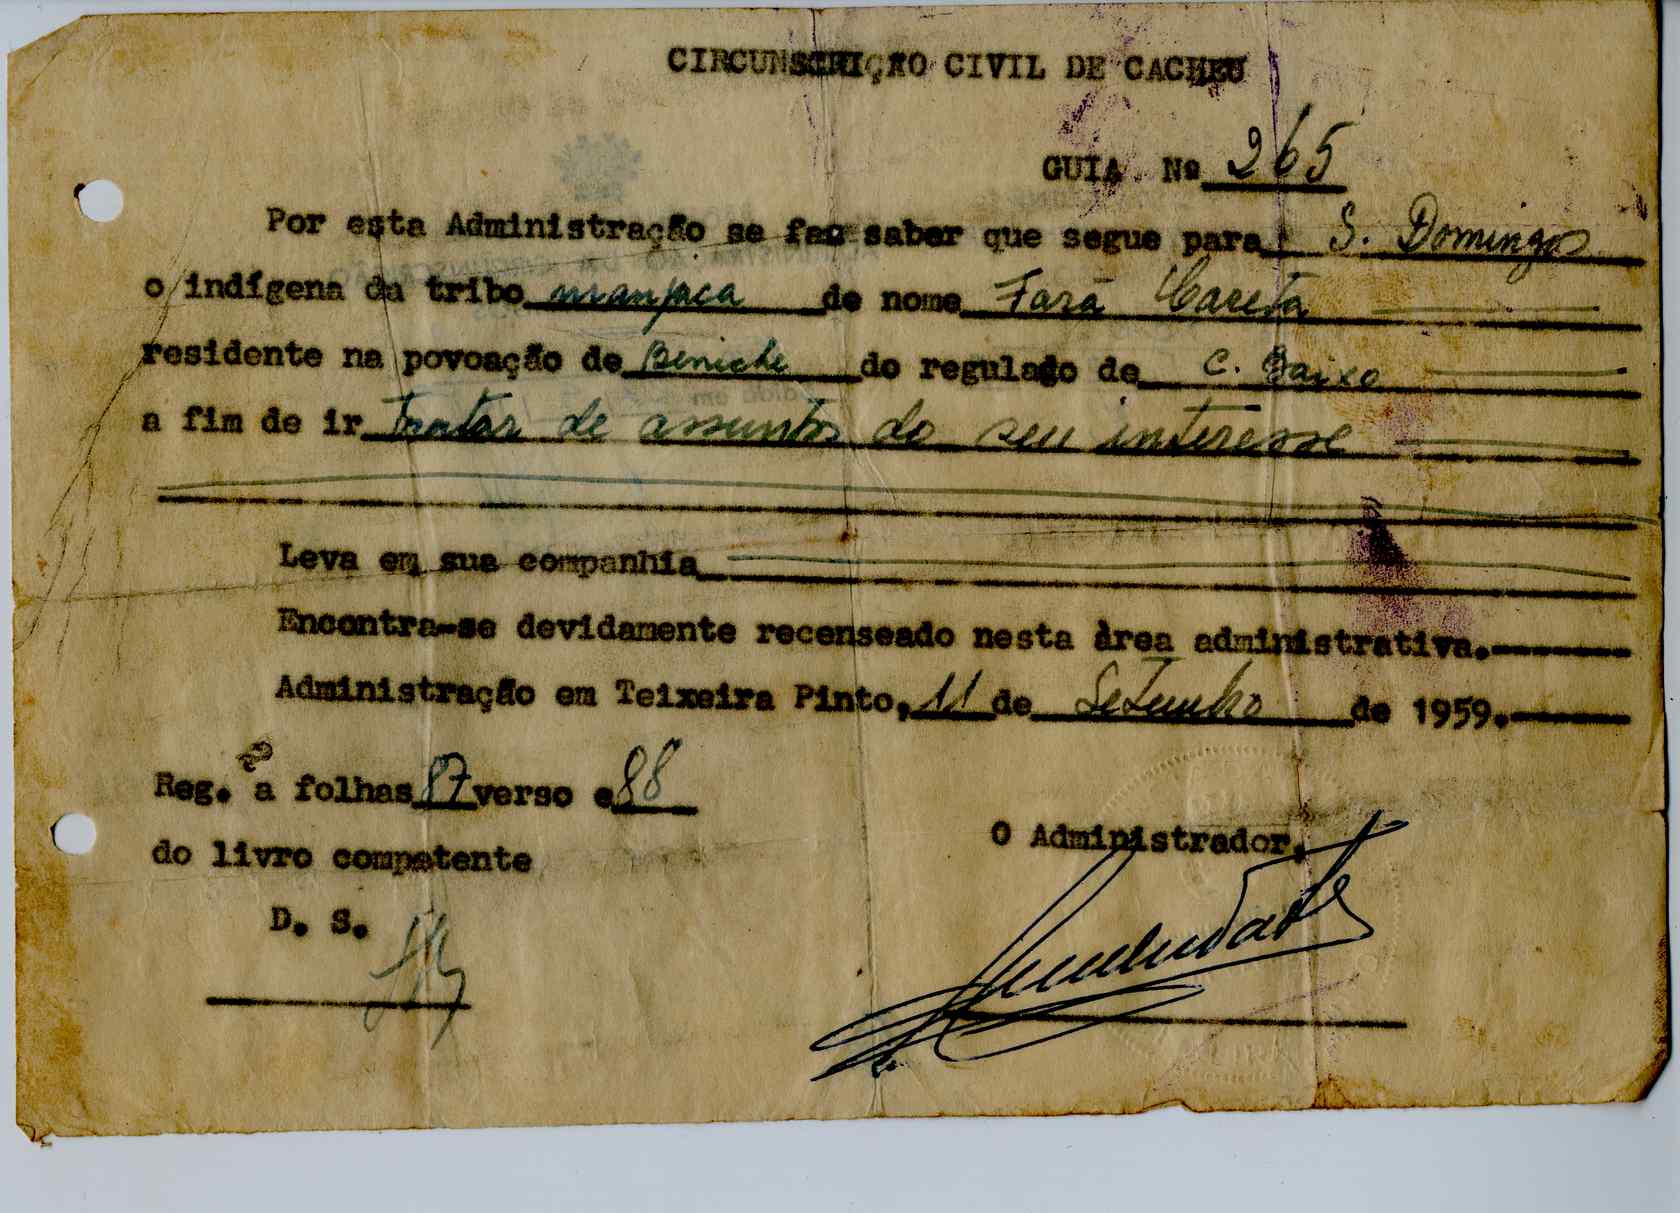 CIRCUNSCRIÇÃO CIVIL DE CACHEU
GUIA Nº 265
Por esta Administração se faz saber que segue para S. Domingos
o indígena da tribo manjaca de nome Fará Careta
residente na povoação de Beniche do regulado de C. Baixo
a fim de ir tratar de assuntos do seu interesse
Leva em sua companhia
Encontra-se devidamente recenseado nesta àrea administrativa.
Administração em Teixeira Pinto, 11 de Setembro de 1959.
Reg. a folhas 87 verso e 88
do livro competente
O Administrador,
D. S.